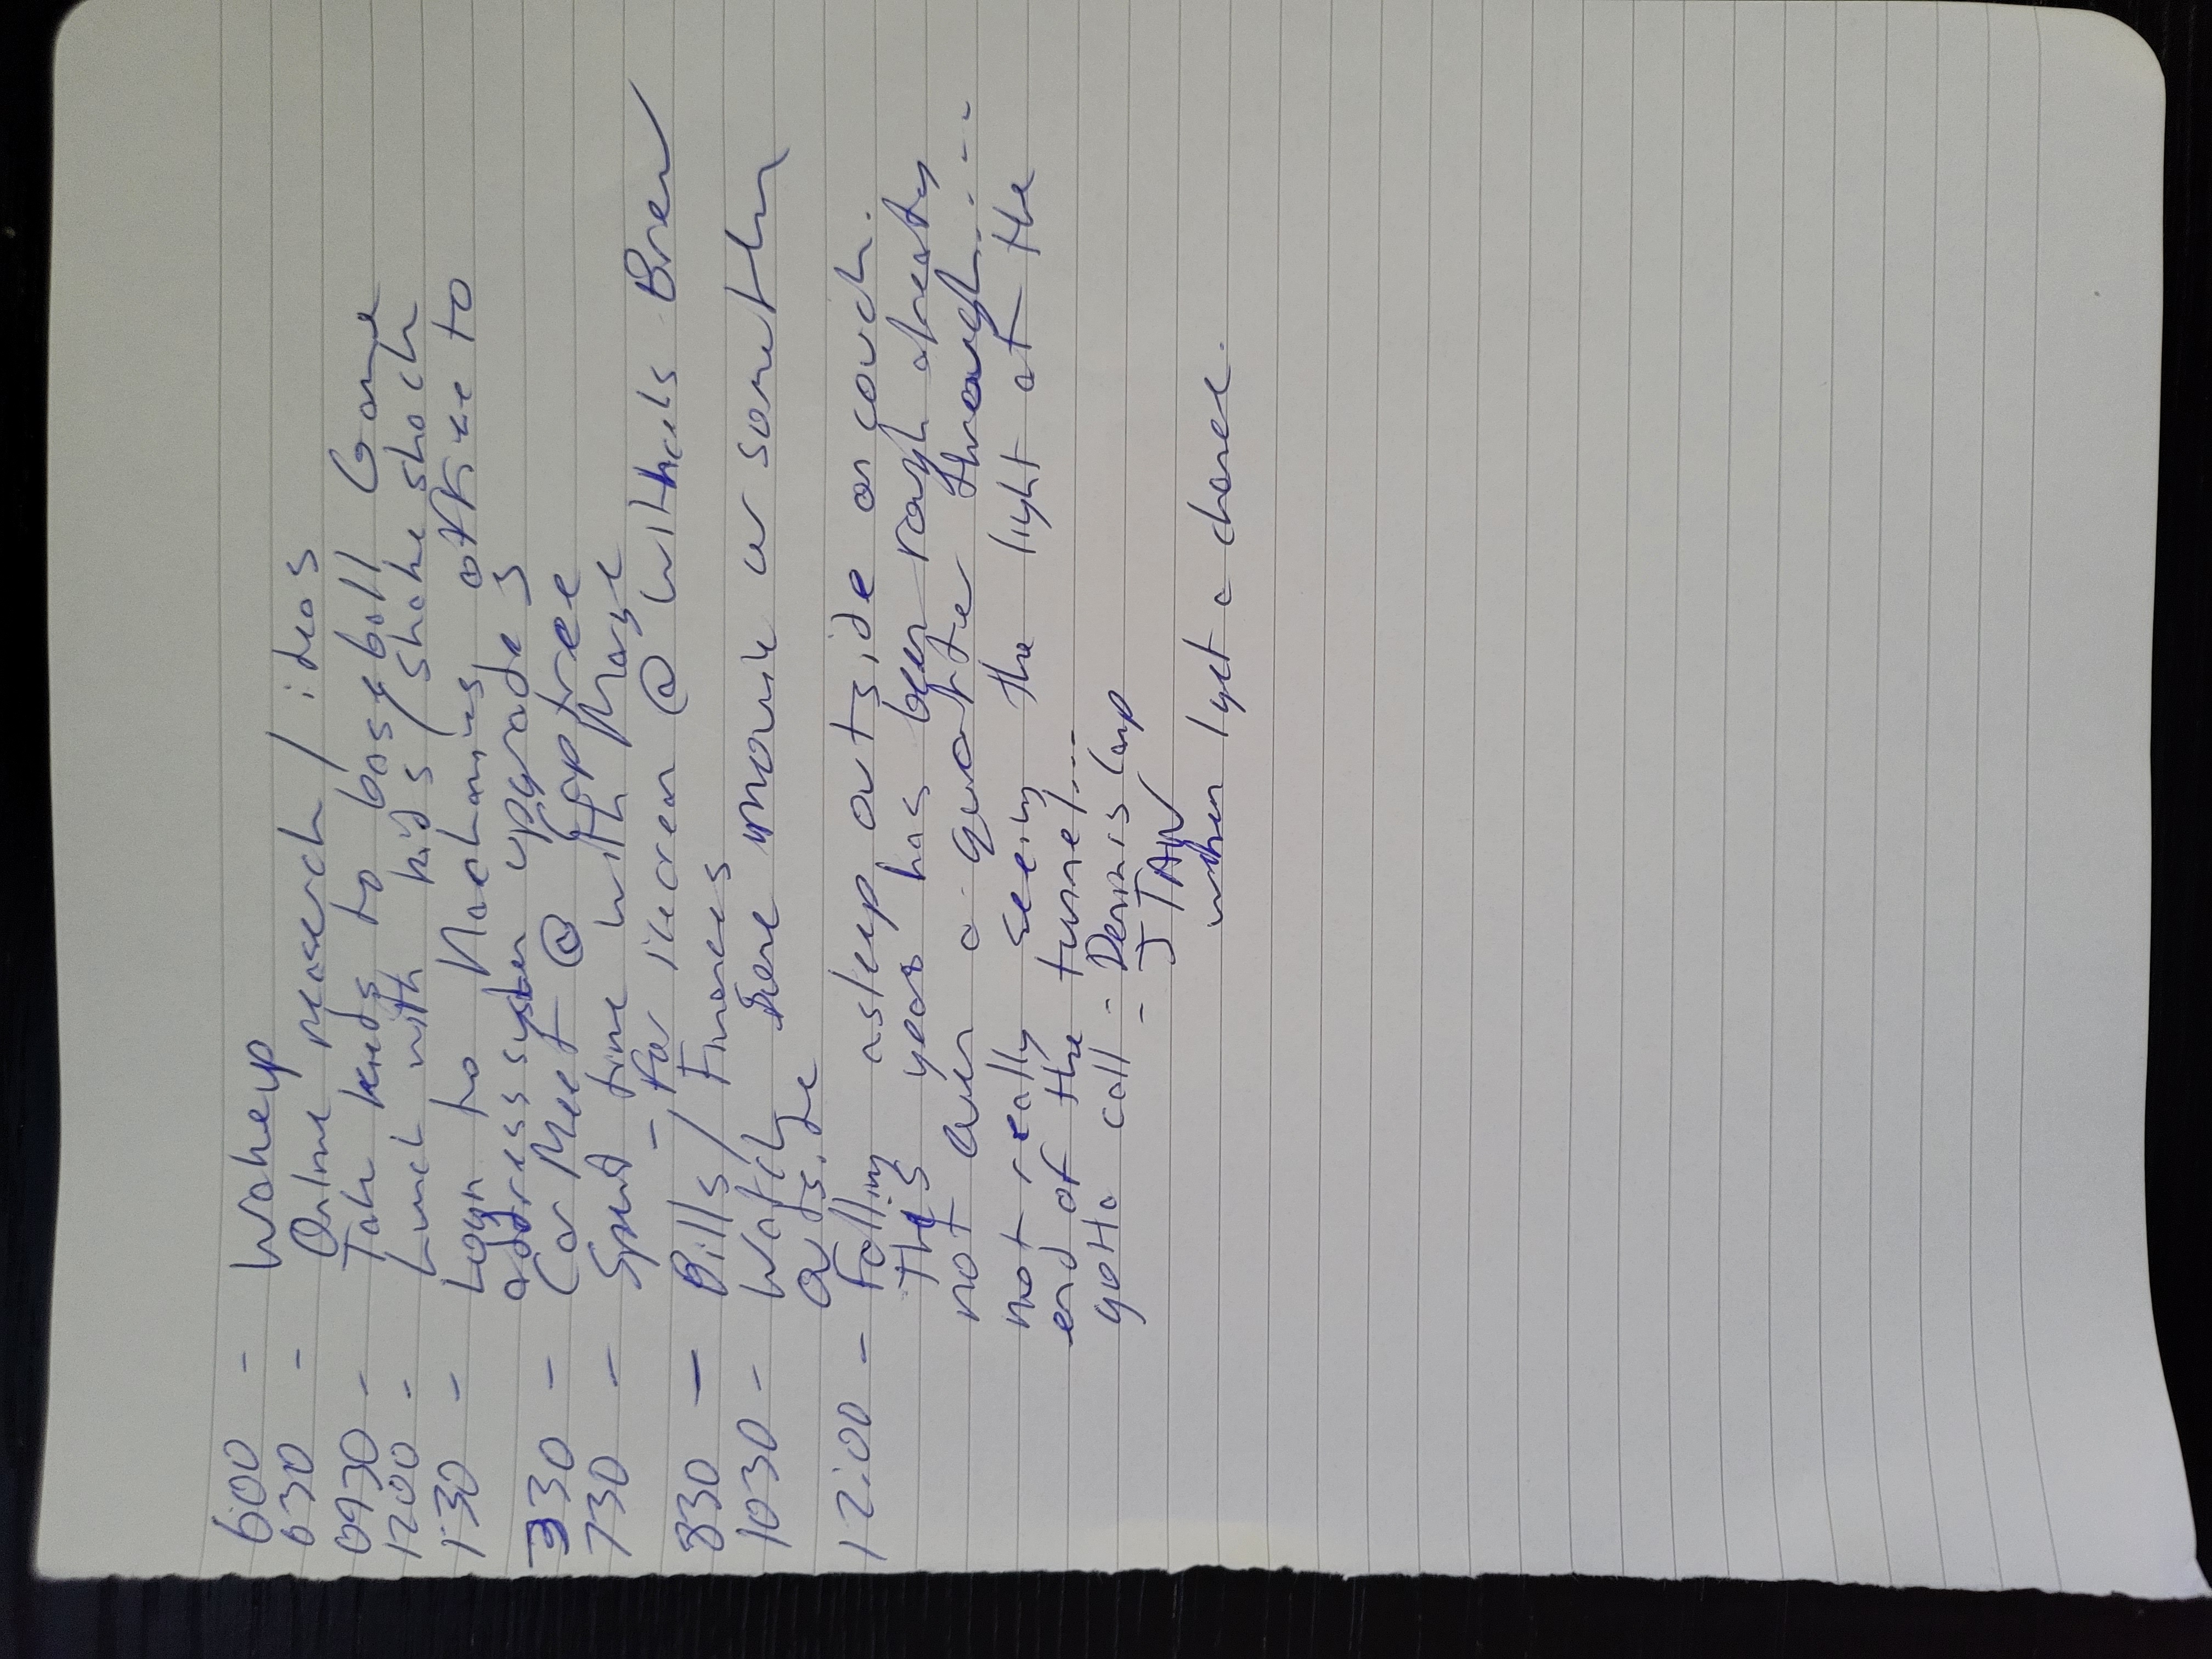 600 - Wakeup
630 - Online research / ideas
0930 - Take kids to baseball Game
1200 - Lunch with kids / Shake shack
1:30 - Login to office to
address system upgrades
330 - Car Meet @ Captree
730 - Spent time with
- for icecream @ Brew
830 - Bills / Finances
1030 - Watch some movie or somethin
outside
12:00 - Falling asleep outside on couch.
This year has been rough already
not even a quarter through.....
not really seeing the light at the
end of the tunnel...
gotta call - Dennis
- JTAW
when I get a chance.